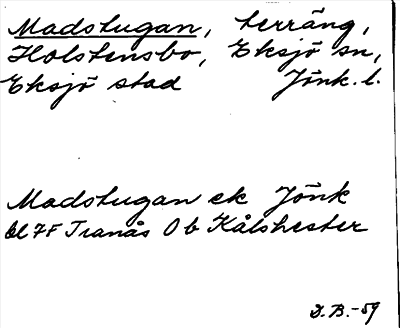 Madstugan, terräng,
Holstensbo, Eksjö sn,
Eksjö stad Jönk. l.
Madstugan ek Jönk
bl 7F Tranås 0 b Kålshester
D.B.-59